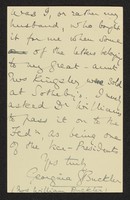 was I, or rather my
husband, who bought
it for me when some
of the letters belong
to my great-aunt
Mrs Kingsley were sold
at Sotheby's. I now
asked Dr Williams
to pass it on to the
Fed n, as being one
of the Vice-Presidents
Yrs truly
Georgina G Buckler
(Mrs William Buckler)